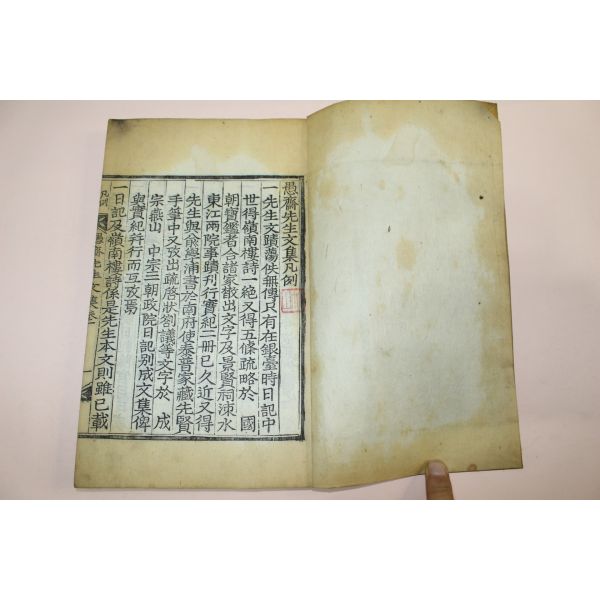 愚齋先生文集凡例
一先生文蹟蕩佚無傳只有在銀臺時日記中
世得嶺南樓詩一絶又得五條疏略於 國
朝寶鑑者合譜家散出文字及景賢祠涑水
東江兩院事蹟刊行實紀二冊已久近又得
先生與兪經浦書於南府使泰普家藏先賢
手筆中又攷出疏啓狀劄議等文字於 成
宗燕山 中宗三朝政院日記別成文集俾
與實紀幷行而互攷焉
一日記及嶺南樓詩係是先生本文則雖已載
凡例
愚齋先生文集卷一